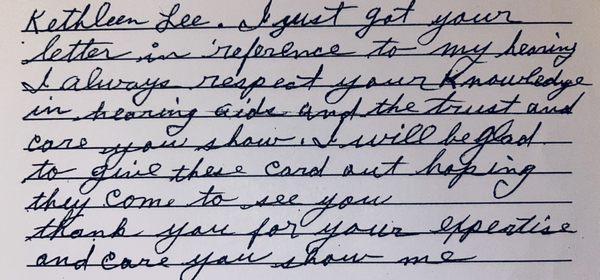 Kathleen Lee. I just got your
letter in reference to my hearing
I always respect your knowledge
in hearing aids and the trust and
care you show. I will be glad
to give these card out hoping
they come to see you
thank you for your expertise
and care you show me